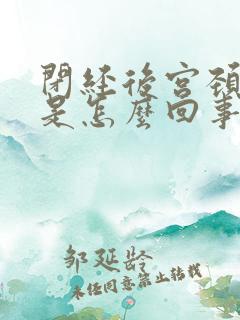 閉經後宮頸
是怎麼回事
邹延龄
未经同意禁止转载